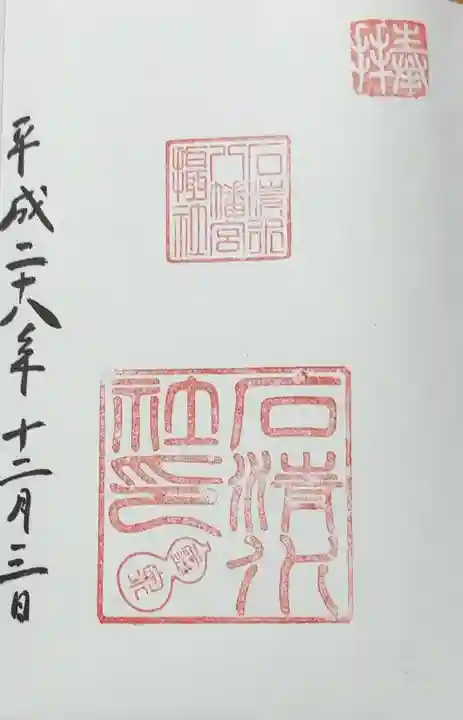 奉拝
石清水
八幡宮
摂社
石清水
社印
霊泉
平成二十八年十二月三日